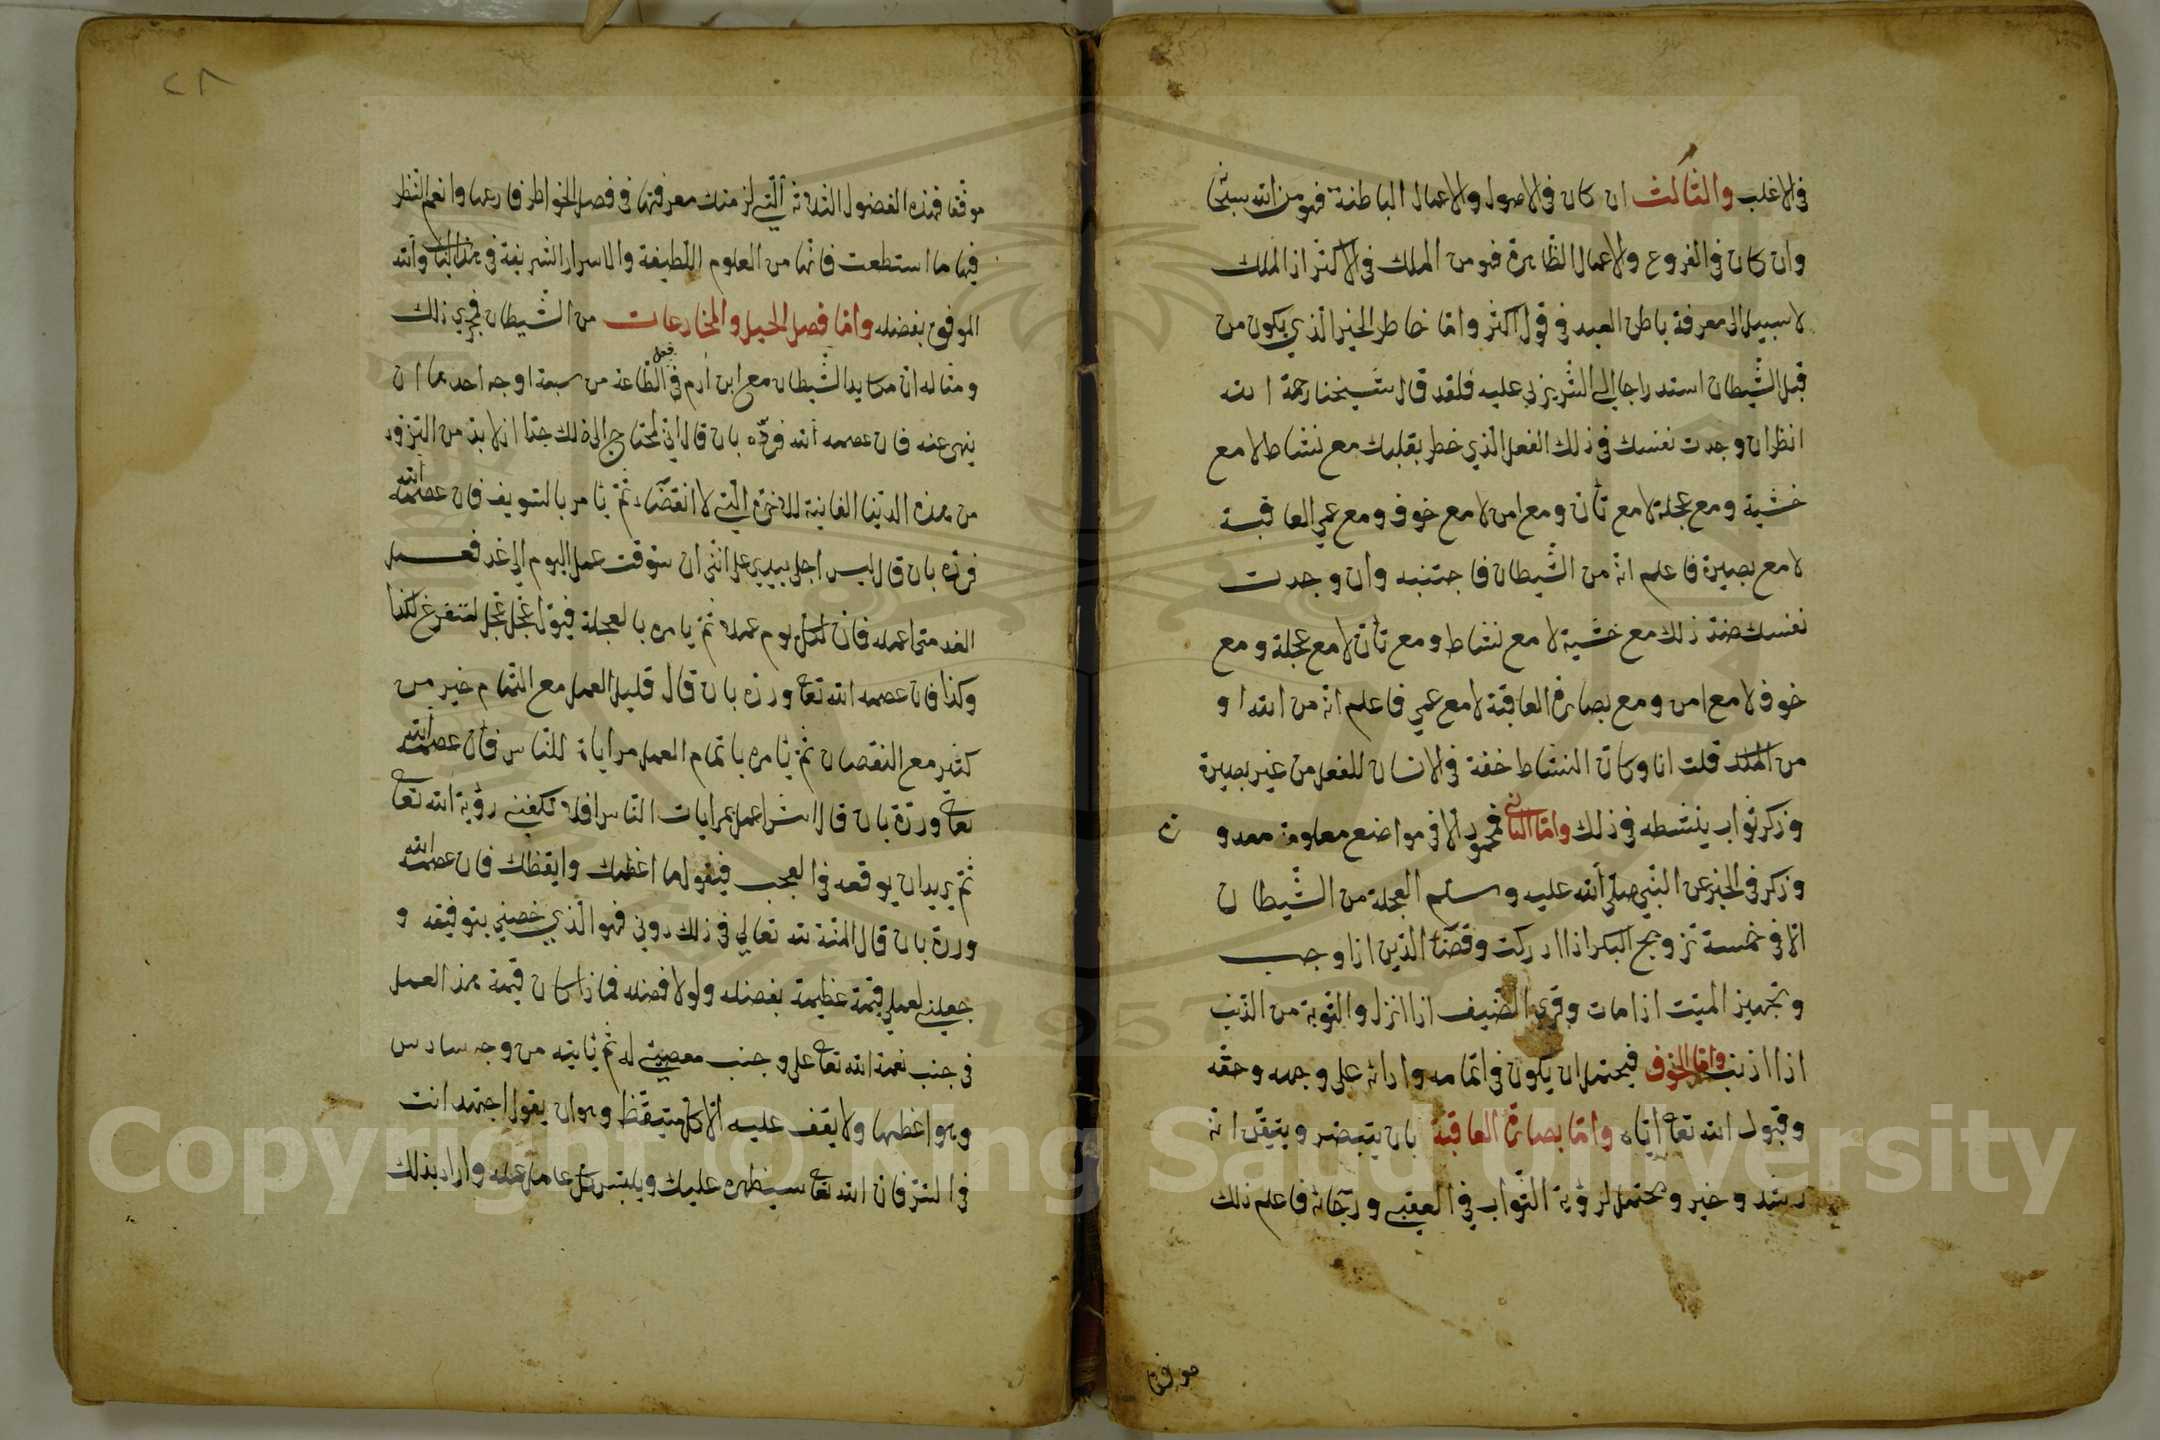 في الاغلب والثالث ان كان في الاصول والاعمال الباطنة فهو من الله سبحا
وان كان في الفروع والاعمال الظاهرة فهو من الملك في الاكثر اذ الملك
لا سبيل الى معرفة باطن العبد في قول اكثر واما خاطر الخير الذي يكون من
قبل الشيطان استدراجا الى الشر يزيد عليه فلقد قال شيخنا رحمة الله
انظر ان وجدت نفسك في ذلك الفعل الذي خطر بقلبك مع نشاط لا مع
خشية ومع عجلة لا مع تأن ومع امن لا مع خوف ومع عمي العاقبة
لا مع بصيرة فاعلم انه من الشيطان فاجتنبه وان وجدت
نفسك ضد ذلك مع خشية لا مع نشاط ومع تأن لا مع عجلة ومع
خوف لا مع امن ومع بصارة العاقبة لا مع عمي فاعلم انه من الله او
من الملك قلت انا وكان النشاط خفة في الانسان للفعل من غير بصيرة
وذكر ثواب ينشطه في ذلك واما التاني فمحمود الا في مواضع معلومة معدو
ة
وذكر في الخبر عن النبي صلي الله عليه وسلم العجلة من الشيطان
الا في خمسة تزويج البكر اذا ادركت وقضا الدين اذا وجب
وتجهيز الميت اذا مات وقري الضيف اذا نزل والتوبة من الذنب
اذا اذنب واما الخوف فيحتمل ان يكون في اتمامه وادائه على وجهه وحقه
وقبول الله تعا اياه واما بصارة العاقبة بان يتبصر ويتيقن انه
رشد وخير ويحتمل لرؤية الثواب في العقبي ورجائه فاعلم ذلك
موفقا
موفقا فهذه الفصول الثلاثة التي لزمتك معرفتها في فصل الخواطر فارعها وانعم النظر
فيها ما استطعت فانها من العلوم اللطيفة والاسرار الشريفة في هذا الباب والله
الموفق بفضله واما فصل الحيل والمخادعات من الشيطان فمجري ذلك
ومثاله ان مكايد الشيطان مع ابن ادم في فعل الطاعة من سبعة اوجه احدها ان
ينهي عنه فان عصمه الله فرده بان قال اني لمحتاج الى ذلك جدا اذ لا بد من التزود
من هذه الدنيا الفانية للاخرة التي لا انقضاء ثم يامر بالتسويف فان عصمه الله
فرده بان قال ليس اجلي بيدي على اني ان سوفت عمل اليوم الي غد فعمل
الغد متى اعمله فان لكل يوم عملا ثم يامره بالعجلة فيقول عجل عجل لتتفرغ لكذا
وكذا فان عصمه الله تعا ورده بان قال قليل العمل مع التمام خير من
كثير مع النقصان ثم يامره باتمام العمل مراياة للناس فان عصمه الله
تعا ورده بان قال اش اعمل بمرايات الناس افلا تكفيني رؤية الله تعا
ثم يريد ان يوقعه في العجب فيقول ما اعظمك وايقظك فان عصمه الله
ورده بان قال المنة لله تعالي في ذلك دوني فهو الذي خصني بتوفيقه و
جعل لعملي قيمة عظيمة بفضله ولولا فضله فماذا كان قيمة هذا العمل
في جنب نعمة الله تعا علي وجنب معصيتي له ثم ياتيه من وجه سادس
وهو اعظمها ولا يقف عليه الا كل متيقظ وهو ان يقول اجتهد انت
في السر فان الله تعا سيظهره عليك ويلبس كل عامل عمله واراد بذلك
٢٨